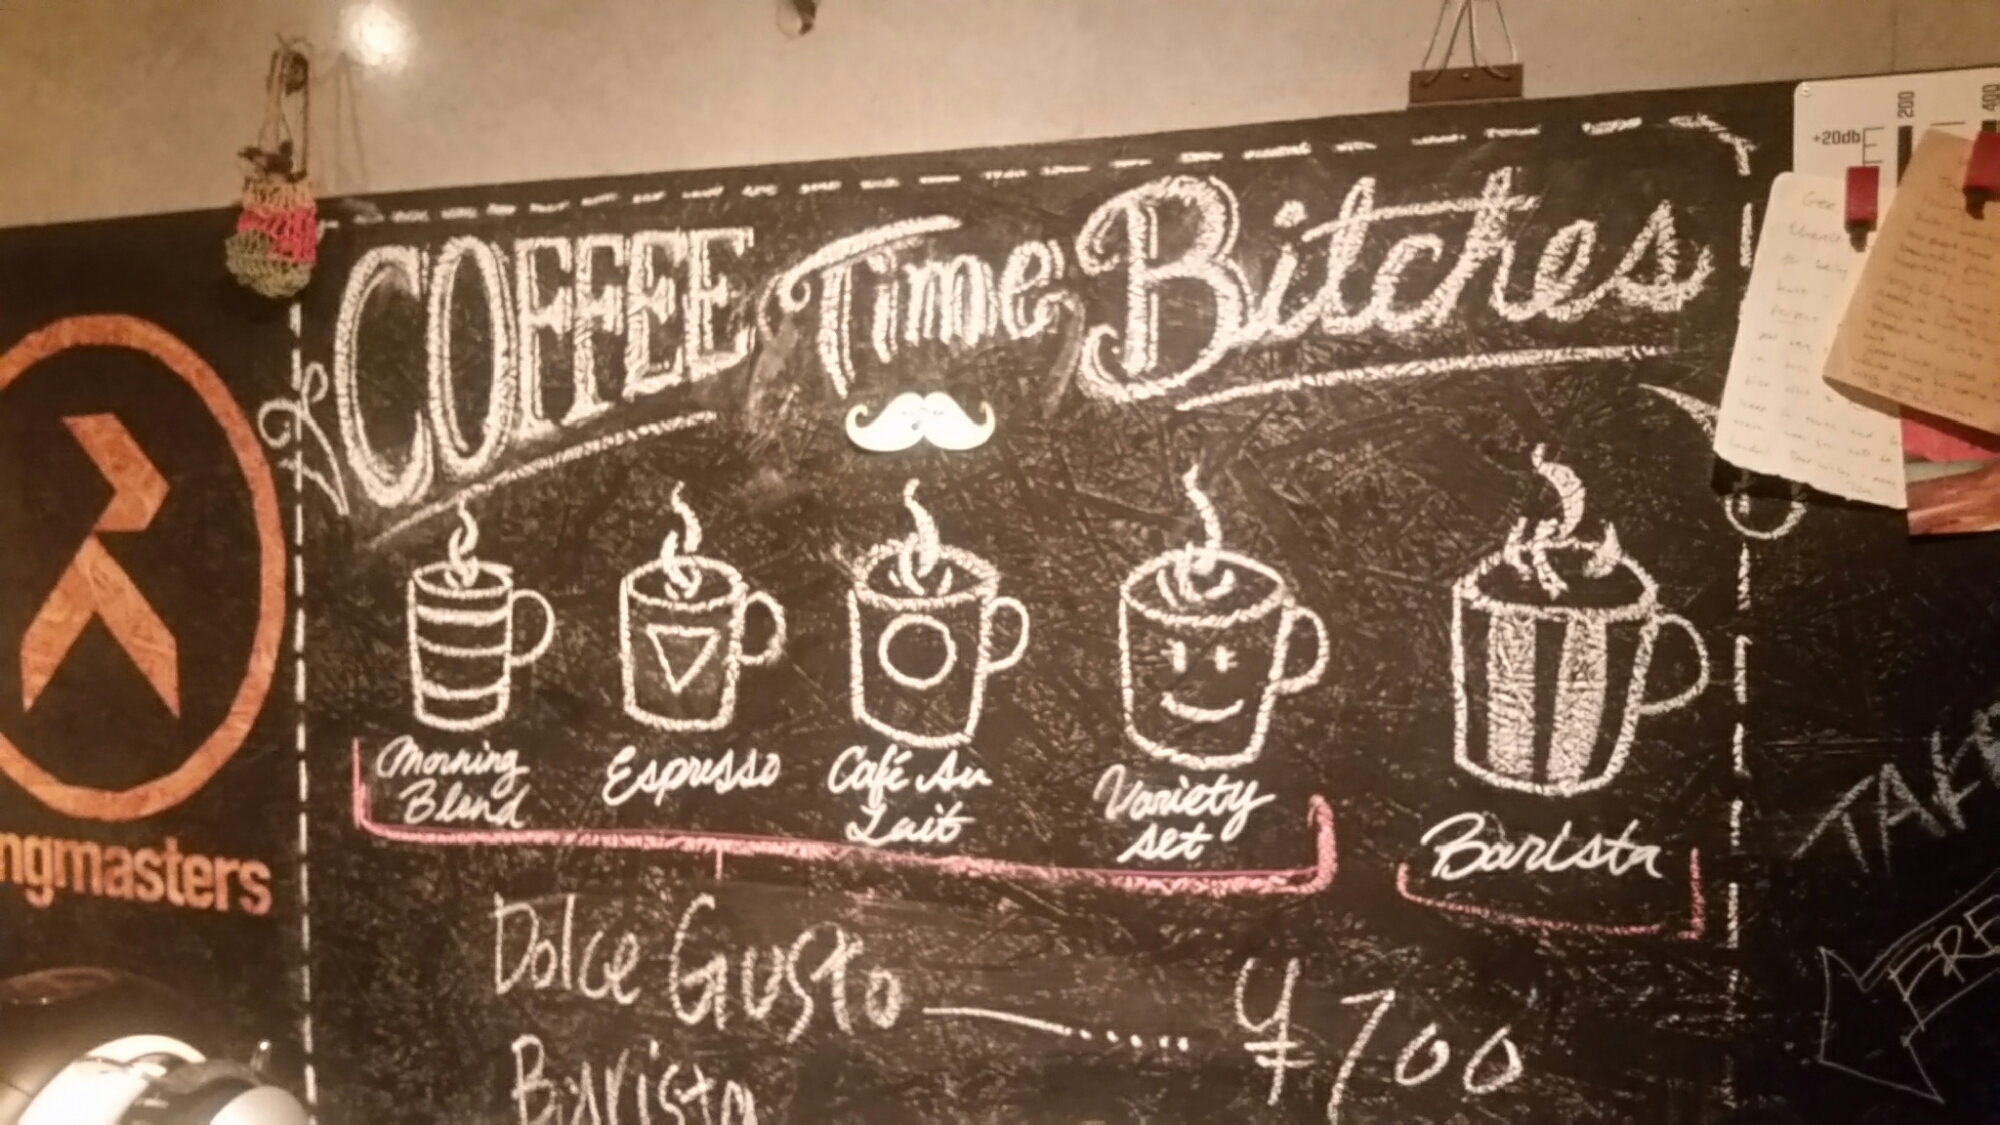 COFFEE Time Bitches
Morning
Blend
Espresso
Café Au
Lait
Variety
Set
Barista
Dolce Gusto ¥700
Barista
ngmasters
+20db
200
400
TAK
FRE